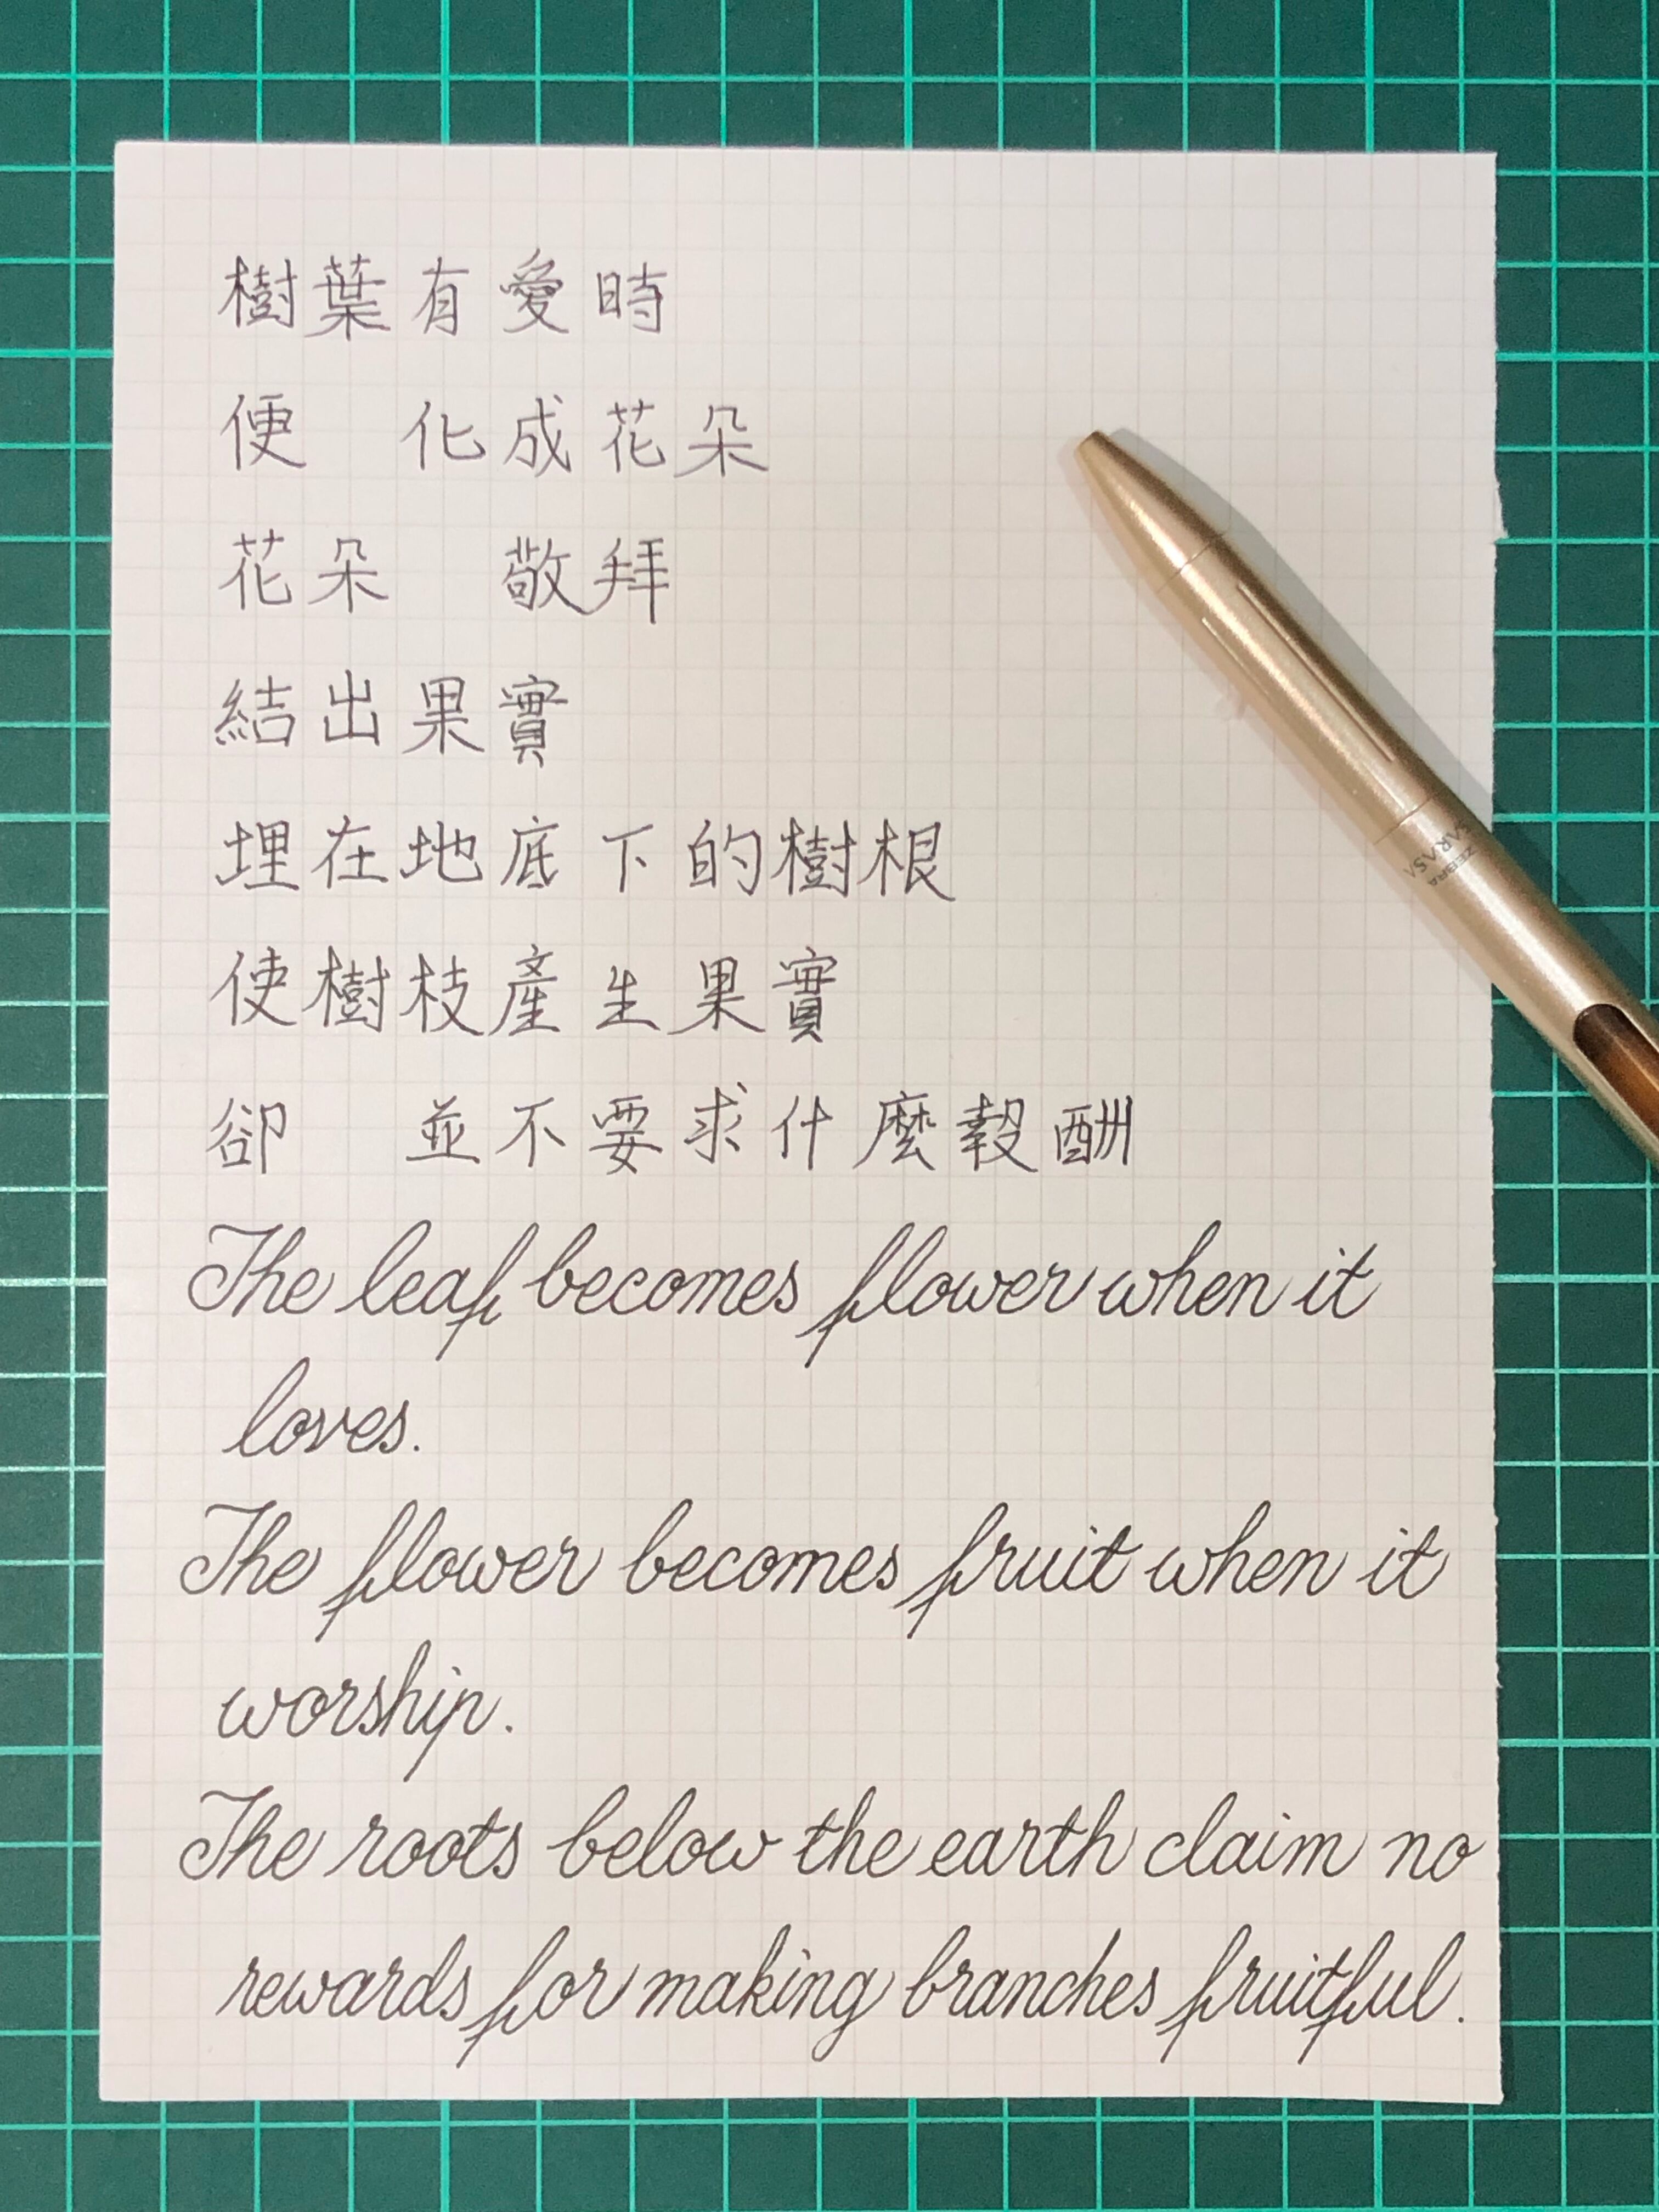 樹葉有愛時
便　化成花朵
花朵　敬拜
結出果實
埋在地底下的樹根
使樹枝產生果實
卻　並不要求什麼報酬
The leaf becomes flower when it
loves.
The flower becomes fruit when it
worship.
The roots below the earth claim no
rewards for making branches fruitful.
ZEBRA
SARASA